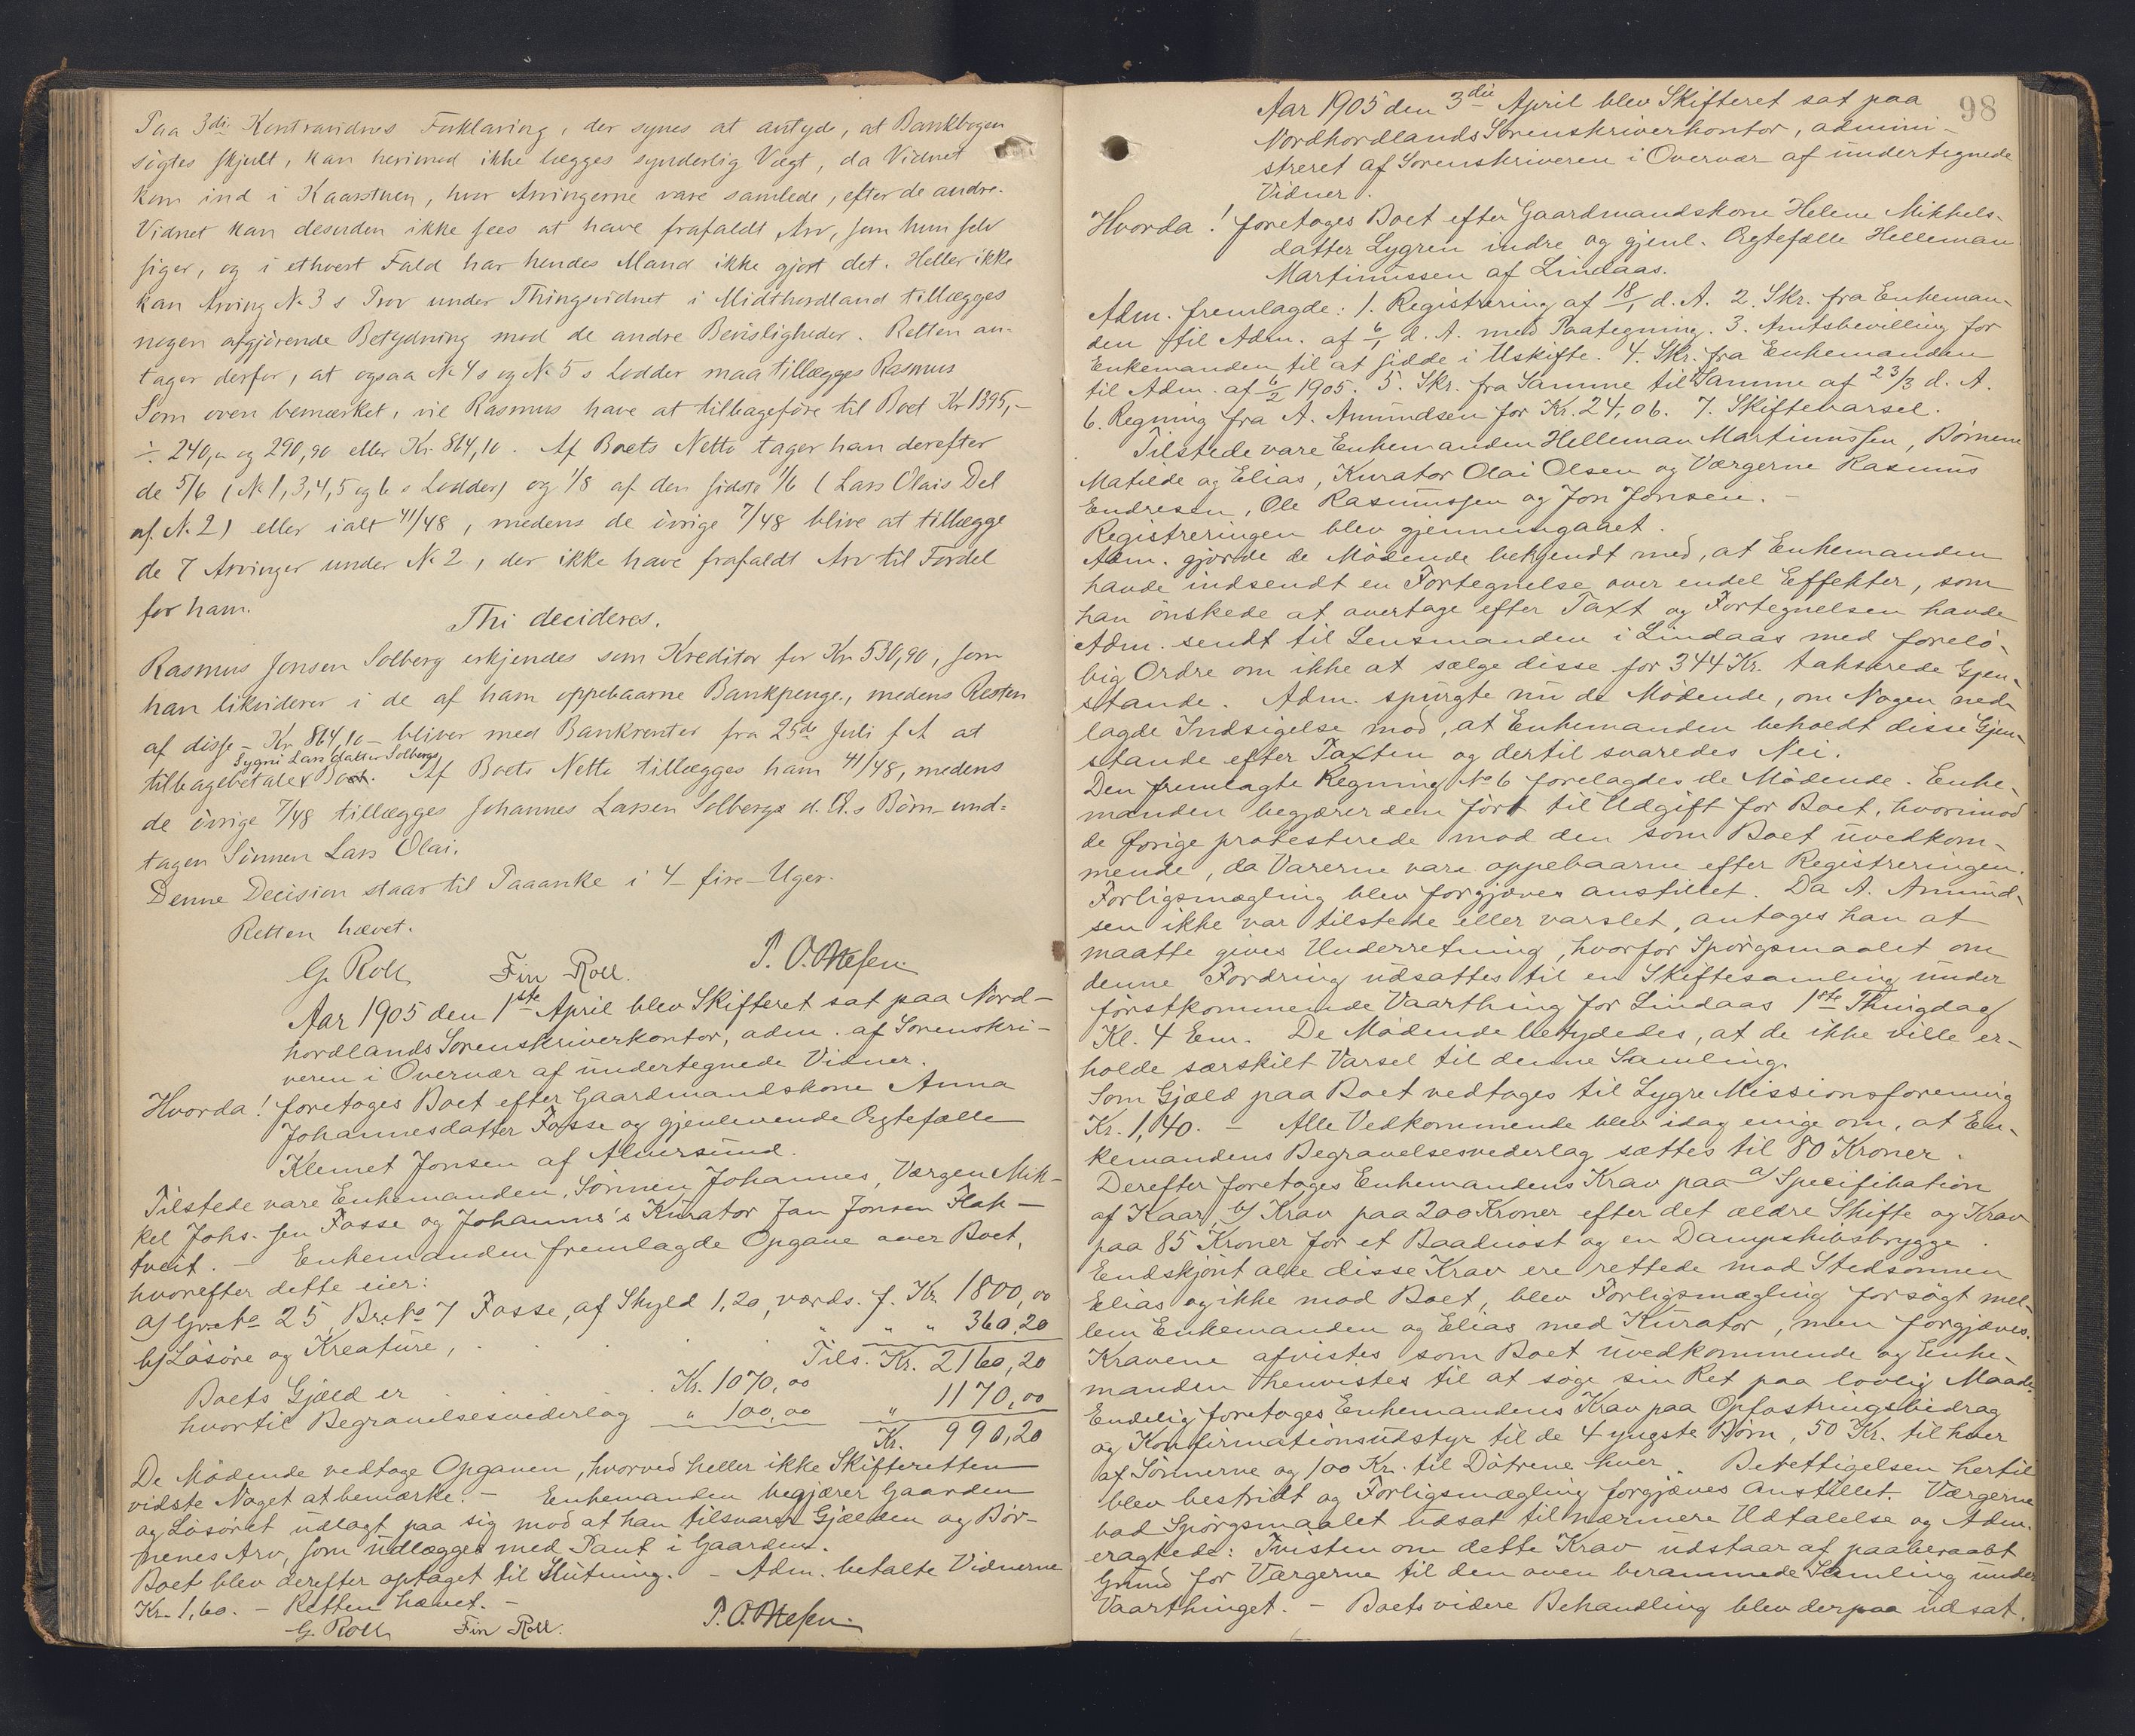 Paa 3die Kontravidnes Forklaring, der synes at antyde, at Bankbogen
søgtes skjult, kan herimod ikke lægges synderlig Vægt, da Vidnet
kom ind i Kaarstuen, hvor Arvingerne vare samlede, efter de andre.
Vidnet kan desuden ikke sees at have frafaldt Arv, som hun selv
siger, og i ethvert Fald har hendes Mand ikke gjort det. Heller ikke
kan Arving No 3 s Prov under Thingsvidnet i Midthordland tillægges
nogen afgjørende Betydning mod de andre Bevisligheder. Retten an-
tager derfor, at ogsaa No 4 s og No 5 s Lodder maa tillægges Rasmus
Som oven bemærket, vil Rasmus have at tilbageføre til Boet Kr 1395,-
÷ 240,00 og 290,90 eller Kr. 864,10. Af Boets Netto tager han derefter
de 5/6 (No 1, 3, 4, 5 og 6 s Lodder) og 1/8 af den sidste 1/6 (Lars Olais Del
af No 2) eller ialt 41/48, medens de øvrige 7/48 blive at tillægge
de 7 Arvinger under No 2, der ikke have frafaldt Arv til Fordel
for ham.
Thi decideres.
Rasmus Jonsen Solberg erkjendes som Kreditor for Kr 530,90, som
han likviderer i de af ham oppebaarne Bankpenge, medens Resten
af disse - Kr 864,10 - bliver med Bankrenter fra 25de Juli f A at
Sygni Larsdatter Solbergs
tilbagebetale Boet. Af Boets Netto tillægges ham 41/48, medens
de øvrige 7/48 tillægges Johannes Larsen Solbergs d. Æ.s Børn und-
tagen Sønnen Lars Olai.
Denne Decision staar til Paaanke i 4 - fire - Uger.
Retten hævet.
G. Roll Fin Roll. P. O. Mesen
Aar 1905 den 1ste April blev Skifteret sat paa Nord-
hordlands Sorenskriverkontor, adm. af Sorenskri-
veren i Overvær af undertegnede Vidner.
Hvorda! foretoges Boet efter Gaardmandskone Anna
Johannesdatter Fosse og gjenlevende Ægtefælle
Klemet Jonsen af Alversund.
Tilstede vare Enkemanden, Sønnen Johannes, Værgen Mik-
kel Johs. sen Fosse og Johannes's Kurator Jan Jonsen Flak-
tveit. - Enkemanden fremlagde Opgave over Boet,
hvorefter dette eier:
a) Gr. No 25, Br. No 7 Fosse, af Skyld 1,20, værds. f. Kr. 1800,00
b) Løsøre og Kreature, . . . " " " 360,20
Tils. Kr. 2160,20
Boets Gjæld er . . . . Kr. 1070,00
hvortil Begravelsesvederlag " 100,00 " 1170,00
Kr. 990,20
De Mødende vedtoge Opgaven, hvorved heller ikke Skifteretten
vidste Noget at bemærke. - Enkemanden begjærer Gaarden
og Løsøret udlagt paa sig mod at han tilsvarer Gjælden og Bør-
nenes Arv, som udlægges med Pant i Gaarden.
Boet blev derefter optaget til Slutning. - Adm. betalte Vidnerne
Kr. 1,60. - Retten hævet. -
G. Roll Fin Roll. P. O. Mesen
98
Aar 1905 den 3die April blev Skifteret sat paa
Nordhordlands Sorenskriverkontor, admini-
streret af Sorenskriveren i Overvær af undertegnede
Vidner.
Hvorda! foretoges Boet efter Gaardmandskone Helene Mikkels-
datter Lygren indre og gjenl. Ægtefælle Helleman
Martinussen af Lindaas.
Adm. fremlagde: 1. Registrering af 18/1 d. A. 2. Skr. fra Enkeman-
den til Adm. af 6/1 d. A. med Paategning. 3. Amtsbevilling for
Enkemanden til at sidde i Uskifte. 4. Skr. fra Enkemanden
til Adm. af 6/2 1905. 5. Skr. fra Samme til Samme af 23/3 d. A.
6. Regning fra A. Amundsen for Kr. 24,06. 7. Skiftevarsel.
Tilstede vare Enkemanden Helleman Martinussen, Børnene
Matilde og Elias, Kurator Olai Olsen og Værgerne Rasmus
Endresen, Ole Rasmussen og Jon Jonsen. -
Registreringen blev gjennemgaaet.
Adm. gjorde de Mødende bekjendt med, at Enkemanden
havde indsendt en Fortegnelse over endel Effekter, som
han ønskede at overtage efter Taxt og Fortegnelsen havde
Adm. sendt til Lensmanden i Lindaas med forelø-
big Ordre om ikke at sælge disse for 344 Kr. takserede Gjen-
stande. Adm. spurgte nu de Mødende, om Nogen ned-
lagde Indsigelse mod, at Enkemanden beholdt disse Gjen-
stande efter Taxten og dertil svaredes Nei.
Den fremlagte Regning No 6 forelagdes de Mødende. Enke-
manden begjærer den ført til Udgift for Boet, hvorimod
de øvrige protesterede mod den som Boet uvedkom-
mende, da Varerne vare oppebaarne efter Registreringen.
Forligsmægling blev forgjæves anstillet. Da A. Amund-
sen ikke var tilstede eller varslet, antages han at
maatte gives Underretning, hvorfor Spørgsmaalet om
denne Fordring udsattes til en Skiftesamling under
førstkommende Vaarthing for Lindaas 1ste Thingdag
Kl. 4 Em. De Mødende betydedes, at de ikke ville er-
holde særskilt Varsel til denne Samling.
Som Gjæld paa Boet vedtages til Lygre Missionsforening
Kr. 1,40. - Alle Vedkommende blev idag enige om, at En-
kemandens Begravelsesvederlag sættes til 80 Kroner.
Derefter foretoges Enkemandens Krav paa a) Specifikation
af Kaar, b) Krav paa 200 Kroner efter det ældre Skifte og Krav
paa 85 Kroner for et Baadnøst og en Dampskibsbrygge.
Endskjønt alle disse Krav ere rettede mod Stedsønnen
Elias og ikke mod Boet, blev Forligsmægling forsøgt mel-
lem Enkemanden og Elias med Kurator, men forgjæves.
Kravene afvistes som Boet uvedkommende og Enke-
manden henvistes til at søge sin Ret paa lovlig Maade.
Endelig foretoges Enkemandens Krav paa Opfostringsbidrag
og Konfirmationsudstyr til de 4 yngste Børn, 50 Kr. til hver
af Sønnerne og 100 Kr. til Døtrene hver. Berettigelsen hertil
blev bestridt og Forligsmægling forgjæves anstillet. Værgerne
bad Spørgsmaalet udsat til nærmere Udtalelse og Adm.
eragtede: Tvisten om dette Krav udstaar af paaberaabt
Grund for Værgerne til den oven berammede Samling under
Vaarthinget. - Boets videre Behandling blev derpaa udsat.